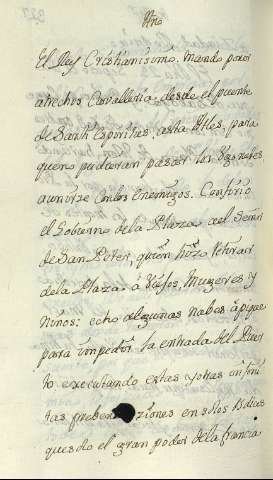 El Rey Cristianisimo, mando poner
atrechos Cavalleria, desde el puente
de Santi Espiritus, asta Atles, para
que no pudieran pasar los Ugonotes
a unirse con los Enemigos. Confirio
el Govierno de la Plaza al Señor
de San Peter, quien hizo retirar
de la Plaza a Viejos, Mugeres y
Niños: echo algunas nabes apique
para impedir la entrada del Puer
to executando estas y otras infini
tas preben ziones en solos 15 dias
quedo el gran poder de la francia